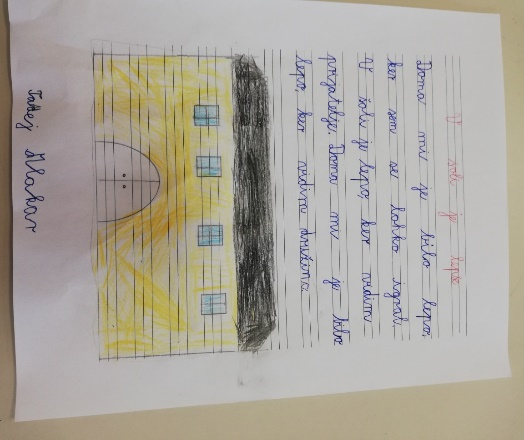 V šoli je lepše
Doma mi je bilo lepo,
ker sem se lahko igral.
V šoli je lepo, ker vidim
prijatelje. Doma mi je bilo
lepo, ker vidim družino.
Matej Mlakar